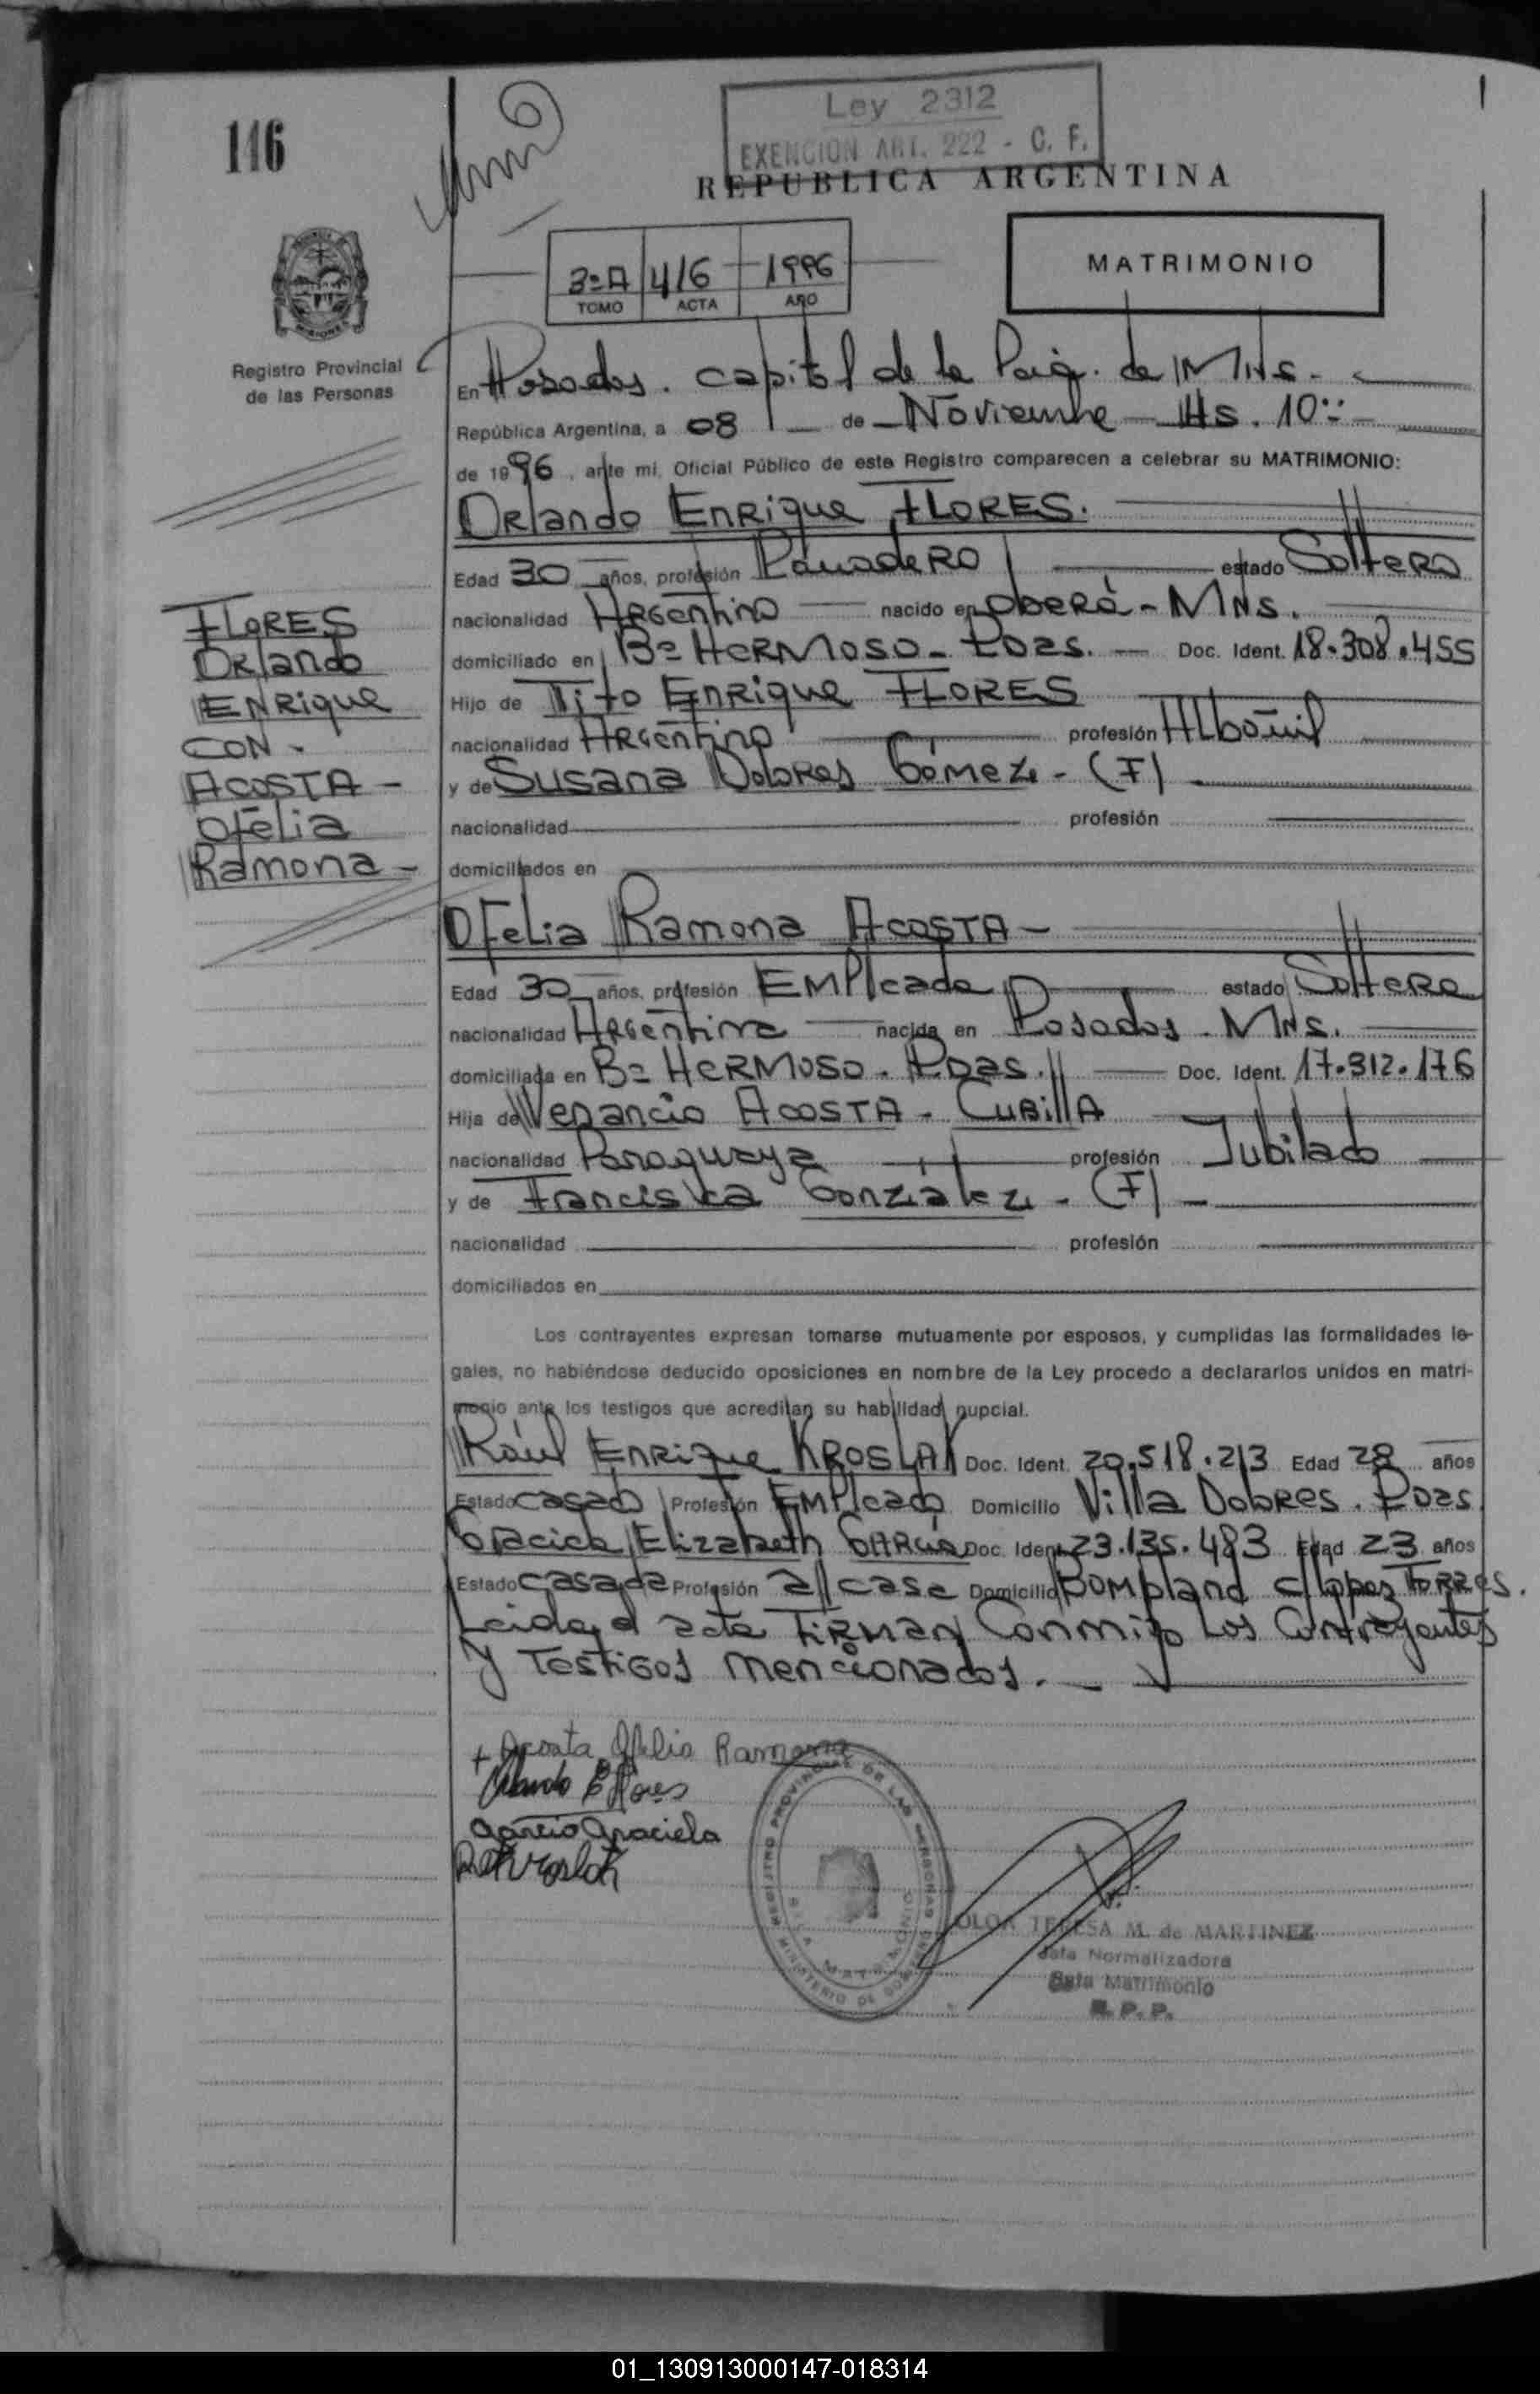 146
Ley 2312
EXENCION ART. 222 - C. F.
REPUBLICA ARGENTINA
3º A 416 1996
TOMO ACTA AÑO
MATRIMONIO
Registro Provincial
de las Personas
En Posadas. capital de la de Mns.
República Argentina, a 08 de Noviembre Hs. 10:
de 1996, ante mi, Oficial Público de este Registro comparecen a celebrar su MATRIMONIO:
Orlando Enrique FLORES.
Edad 30 años, profesión Panadero estado Soltero
nacionalidad Argentino nacido en Oberá - Mns.
domiciliado en Bº Hermoso - Pdas. Doc. Ident. 18.308.455
Hijo de Tito Enrique FLORES
nacionalidad Argentino profesión Albañil
y de Susana Dolores Gómez - (F)
nacionalidad profesión
domiciliados en
FLORES
Orlando
Enrique
CON -
ACOSTA -
Ofelia
Ramona -
Ofelia Ramona Acosta -
Edad 30 años, profesión Empleada estado Soltera
nacionalidad Argentina nacida en Posadas - Mns.
domiciliada en Bº Hermoso - Pdas. Doc. Ident. 17.312.176
Hija de Venancio Acosta - Cubilla
nacionalidad Paraguaya profesión Jubilado
y de Francisca González - (F) -
nacionalidad profesión
domiciliados en
Los contrayentes expresan tomarse mutuamente por esposos, y cumplidas las formalidades le-
gales, no habiéndose deducido oposiciones en nombre de la Ley procedo a declararlos unidos en matri-
monio ante los testigos que acreditan su habilidad nupcial.
Raúl Enrique KROSLAK Doc. Ident. 20.518.213 Edad 28 años
Estado casado Profesión Empleado Domicilio Villa Dolores. Pdas
Graciela Elizabeth García Doc. Ident. 23.135.483 Edad 23 años
Estado casada Profesión a/ casa Domicilio Bompland c/ Lopez Torres.
Leida el acta Firman Conmigo Los Contrayentes
y Testigos mencionados. -
+ Acosta Ofelia Ramona
Orlando E Flores
Garcia Graciela
REGISTRO PROVINCIAL DE LAS PERSONAS
SALA MATRIMONIO
MINISTERIO DE GOBIERNO
TERESA M. de MARTINEZ
Jefa Normalizadora
Sala Matrimonio
R. P. P.
01_130913000147-018314